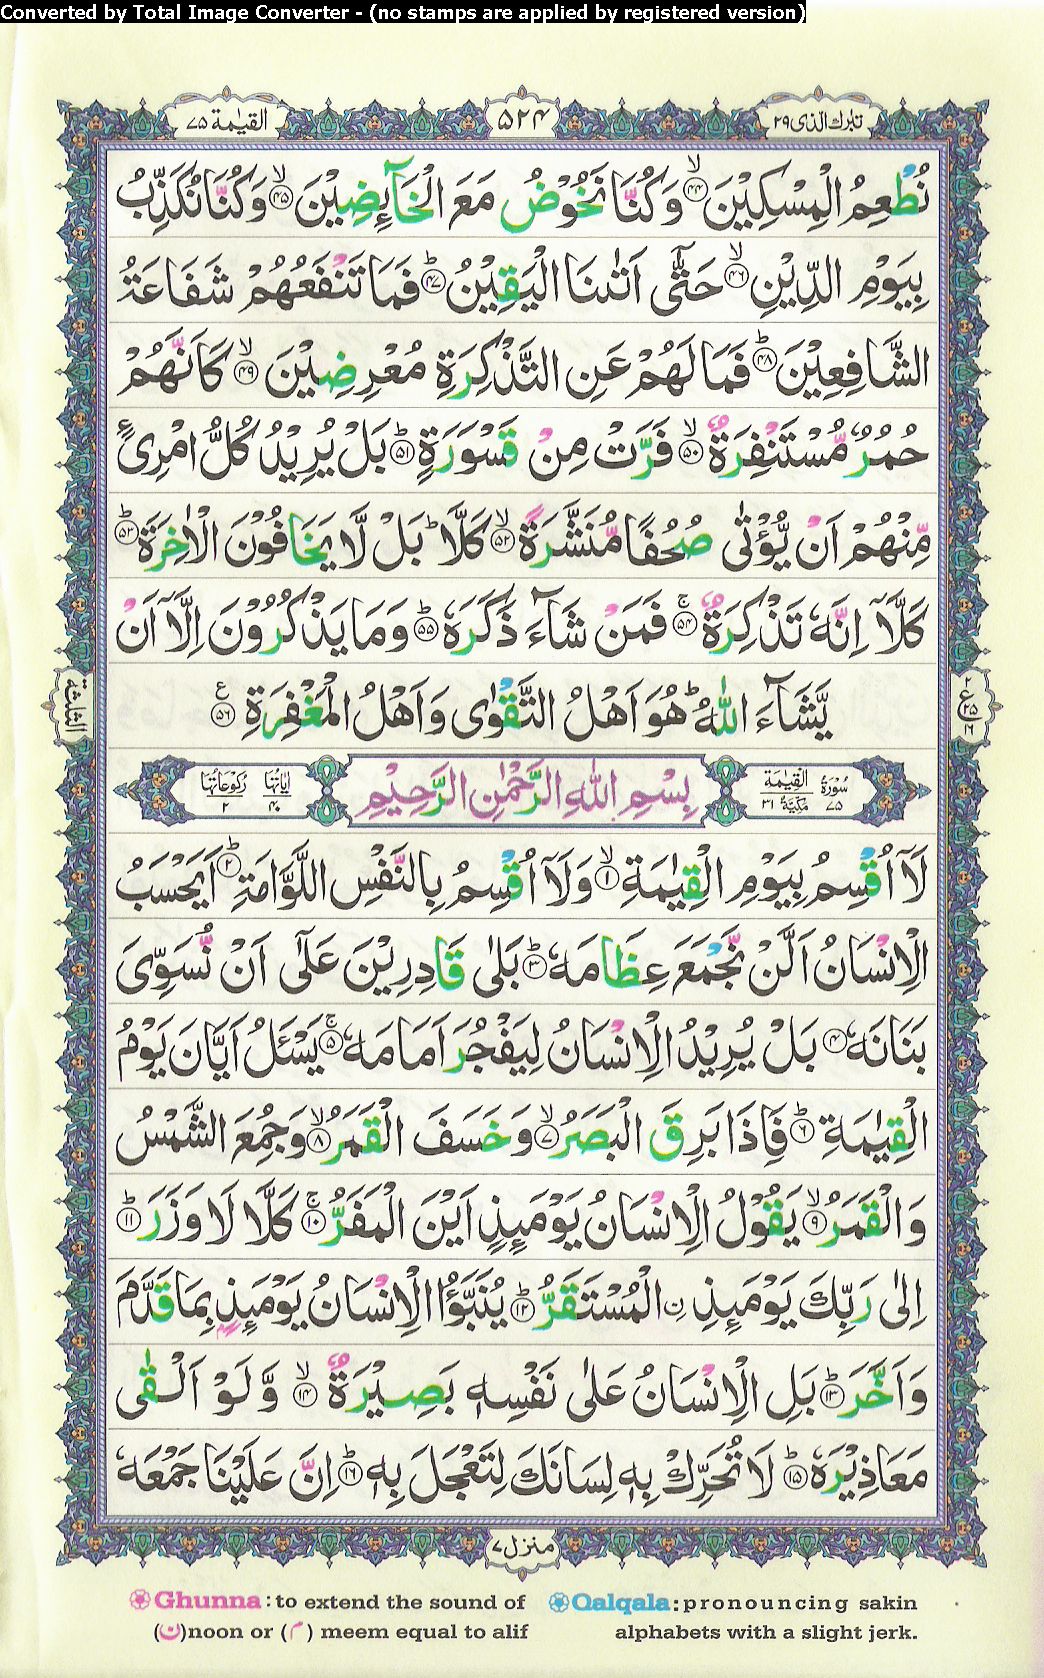 Converted by Total Image Converter - (no stamps are applied by registered version)
تبٰرك الذی ۲۹
۵۲۴
القیٰمة ۷۵
نُطْعِمُ الْمِسْكِیْنَ ۙ﴿۴۴﴾ وَكُنَّا نَخُوْضُ مَعَ الْخَآىِٕضِیْنَ ۙ﴿۴۵﴾ وَكُنَّا نُكَذِّبُ
بِیَوْمِ الدِّیْنِ ۙ﴿۴۶﴾ حَتّٰۤی اَتٰىنَا الْیَقِیْنُ ؕ﴿۴۷﴾ فَمَا تَنْفَعُهُمْ شَفَاعَةُ
الشَّافِعِیْنَ ؕ﴿۴۸﴾ فَمَا لَهُمْ عَنِ التَّذْكِرَةِ مُعْرِضِیْنَ ۙ﴿۴۹﴾ كَاَنَّهُمْ
حُمُرٌ مُّسْتَنْفِرَةٌ ۙ﴿۵۰﴾ فَرَّتْ مِنْ قَسْوَرَةٍ ؕ﴿۵۱﴾ بَلْ یُرِیْدُ كُلُّ امْرِیٴٍ
مِّنْهُمْ اَنْ یُّؤْتٰی صُحُفًا مُّنَشَّرَةً ۙ﴿۵۲﴾ كَلَّا ؕ بَلْ لَّا یَخَافُوْنَ الْاٰخِرَةَ ؕ﴿۵۳﴾
كَلَّاۤ اِنَّهٗ تَذْكِرَةٌ ۚ﴿۵۴﴾ فَمَنْ شَآءَ ذَكَرَهٗ ؕ﴿۵۵﴾ وَمَا یَذْكُرُوْنَ اِلَّاۤ اَنْ
یَّشَآءَ اللّٰهُ ؕ هُوَ اَهْلُ التَّقْوٰی وَاَهْلُ الْمَغْفِرَةِ ﴿۵۶﴾ ع
۲
ع ۲۵
۱۶
الثلثة
سُوْرَةُ ۷۵ الْقِیٰمَةِ مَكِّیَّةٌ ۳۱
بِسْمِ اللّٰهِ الرَّحْمٰنِ الرَّحِیْمِ
اٰیَاتُهَا ۴۰ رُكُوْعَاتُهَا ۲
لَاۤ اُقْسِمُ بِیَوْمِ الْقِیٰمَةِ ۙ﴿۱﴾ وَلَاۤ اُقْسِمُ بِالنَّفْسِ اللَّوَّامَةِ ؕ﴿۲﴾ اَیَحْسَبُ
الْاِنْسَانُ اَلَّنْ نَّجْمَعَ عِظَامَهٗ ؕ﴿۳﴾ بَلٰی قَادِرِیْنَ عَلٰۤی اَنْ نُّسَوِّیَ
بَنَانَهٗ ﴿۴﴾ بَلْ یُرِیْدُ الْاِنْسَانُ لِیَفْجُرَ اَمَامَهٗ ۚ﴿۵﴾ یَسْـَٔلُ اَیَّانَ یَوْمُ
الْقِیٰمَةِ ؕ﴿۶﴾ فَاِذَا بَرِقَ الْبَصَرُ ۙ﴿۷﴾ وَخَسَفَ الْقَمَرُ ۙ﴿۸﴾ وَجُمِعَ الشَّمْسُ
وَالْقَمَرُ ۙ﴿۹﴾ یَقُوْلُ الْاِنْسَانُ یَوْمَىِٕذٍ اَیْنَ الْمَفَرُّ ۚ﴿۱۰﴾ كَلَّا لَا وَزَرَ ؕ﴿۱۱﴾
اِلٰی رَبِّكَ یَوْمَىِٕذِ ن الْمُسْتَقَرُّ ؕ﴿۱۲﴾ یُنَبَّؤُا الْاِنْسَانُ یَوْمَىِٕذٍۭ بِمَا قَدَّمَ
وَاَخَّرَ ؕ﴿۱۳﴾ بَلِ الْاِنْسَانُ عَلٰی نَفْسِهٖ بَصِیْرَةٌ ۙ﴿۱۴﴾ وَّلَوْ اَلْقٰی
مَعَاذِیْرَهٗ ؕ﴿۱۵﴾ لَا تُحَرِّكْ بِهٖ لِسَانَكَ لِتَعْجَلَ بِهٖ ؕ﴿۱۶﴾ اِنَّ عَلَیْنَا جَمْعَهٗ
منزل ۷
Ghunna: to extend the sound of (ن)noon or (م) meem equal to alif
Qalqala: pronouncing sakin alphabets with a slight jerk.